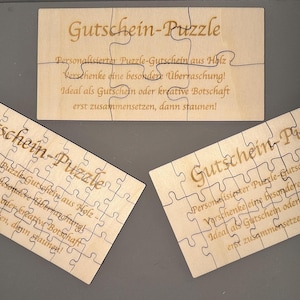 Gutschein-Puzzle
Personalisierter Puzzle-Gutschein aus Holz
Verschenke eine besondere Überraschung!
Ideal als Gutschein oder kreative Botschaft
erst zusammensetzen, dann staunen!
schein-Puzzle
Puzzle-Gutschein aus Holz
besondere Überraschung!
kreative Botschaft
dann staunen!
Gutschein-Puzzle
Personalisierter Puzzle-Gutsc
Verschenke eine besondere
Ideal als Gutschein oder
erst zusammensetzen